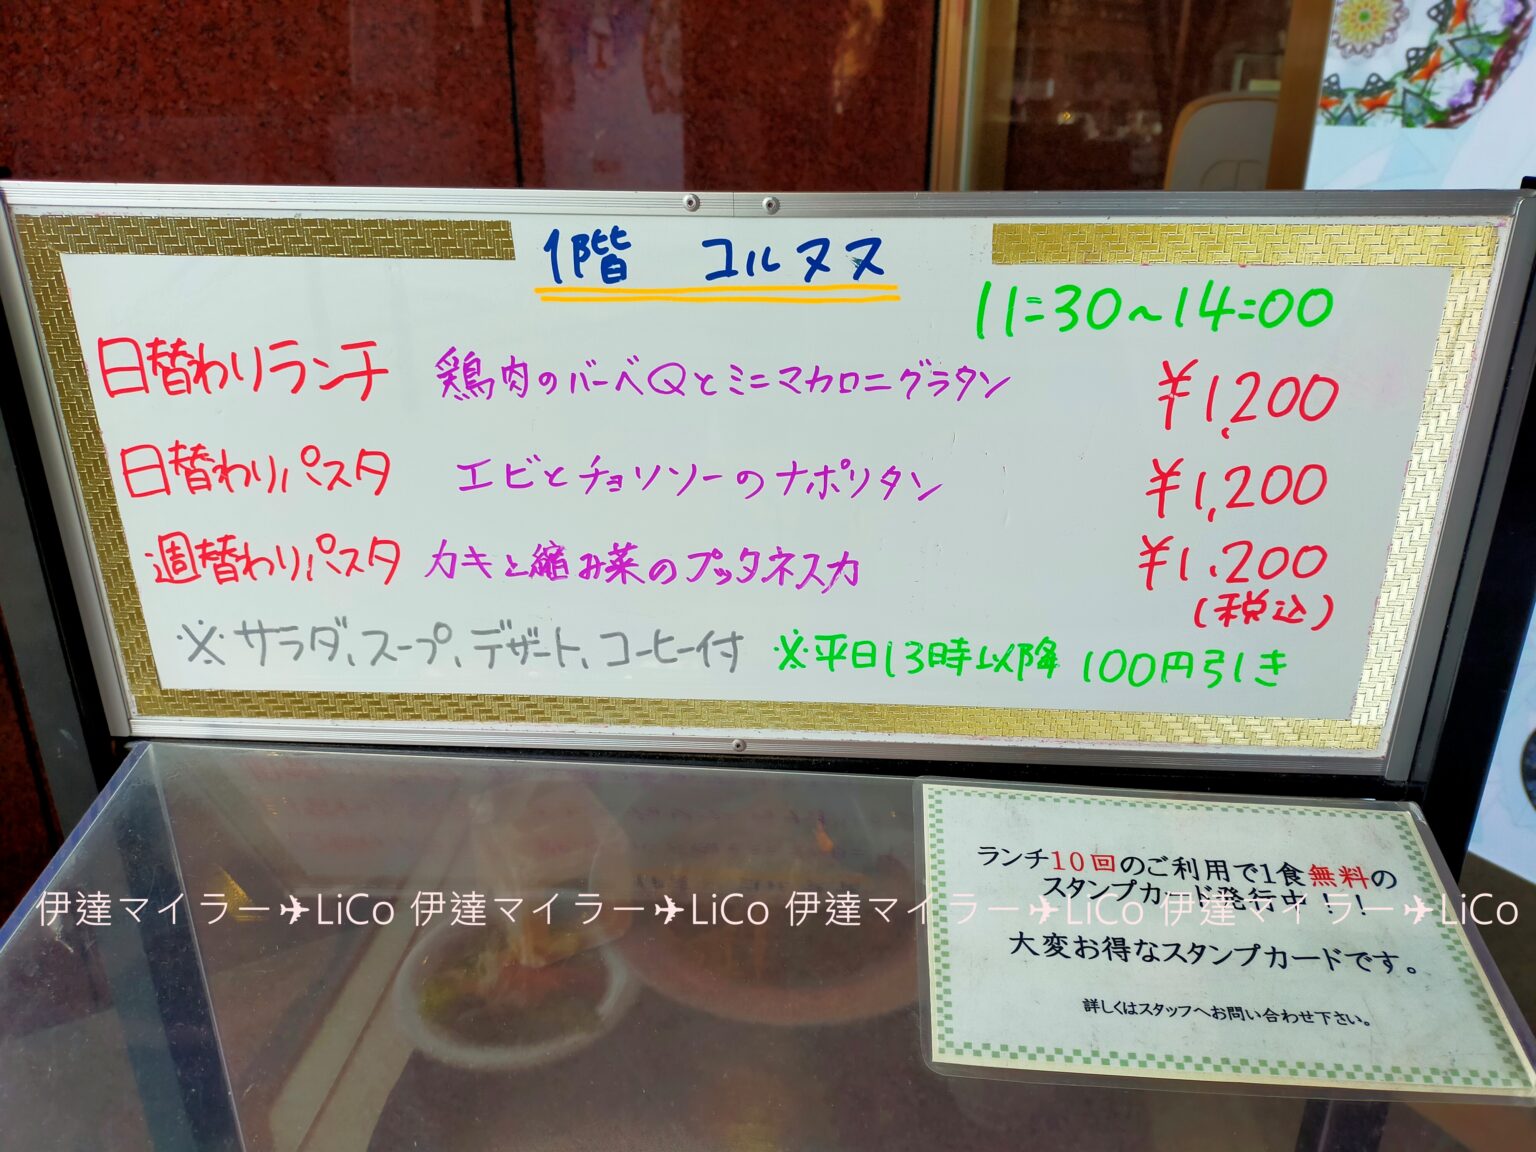 1階 コルヌス
11:30~14:00
日替わりランチ 鶏肉のバーベQとミニマカロニグラタン ¥1,200
日替わりパスタ エビとチョリソーのナポリタン ¥1,200
週替わりパスタ カキと縮み菜のプッタネスカ ¥1,200
(税込)
※サラダ、スープ、デザート、コーヒー付 ※平日13時以降 100円引き
ランチ10回のご利用で1食無料の
スタンプカード発行中!!
伊達マイラー✈LiCo 伊達マイラー✈LiCo 伊達マイラー✈LiCo 伊達マイラー✈LiCo
大変お得なスタンプカードです。
詳しくはスタッフへお問い合わせ下さい。